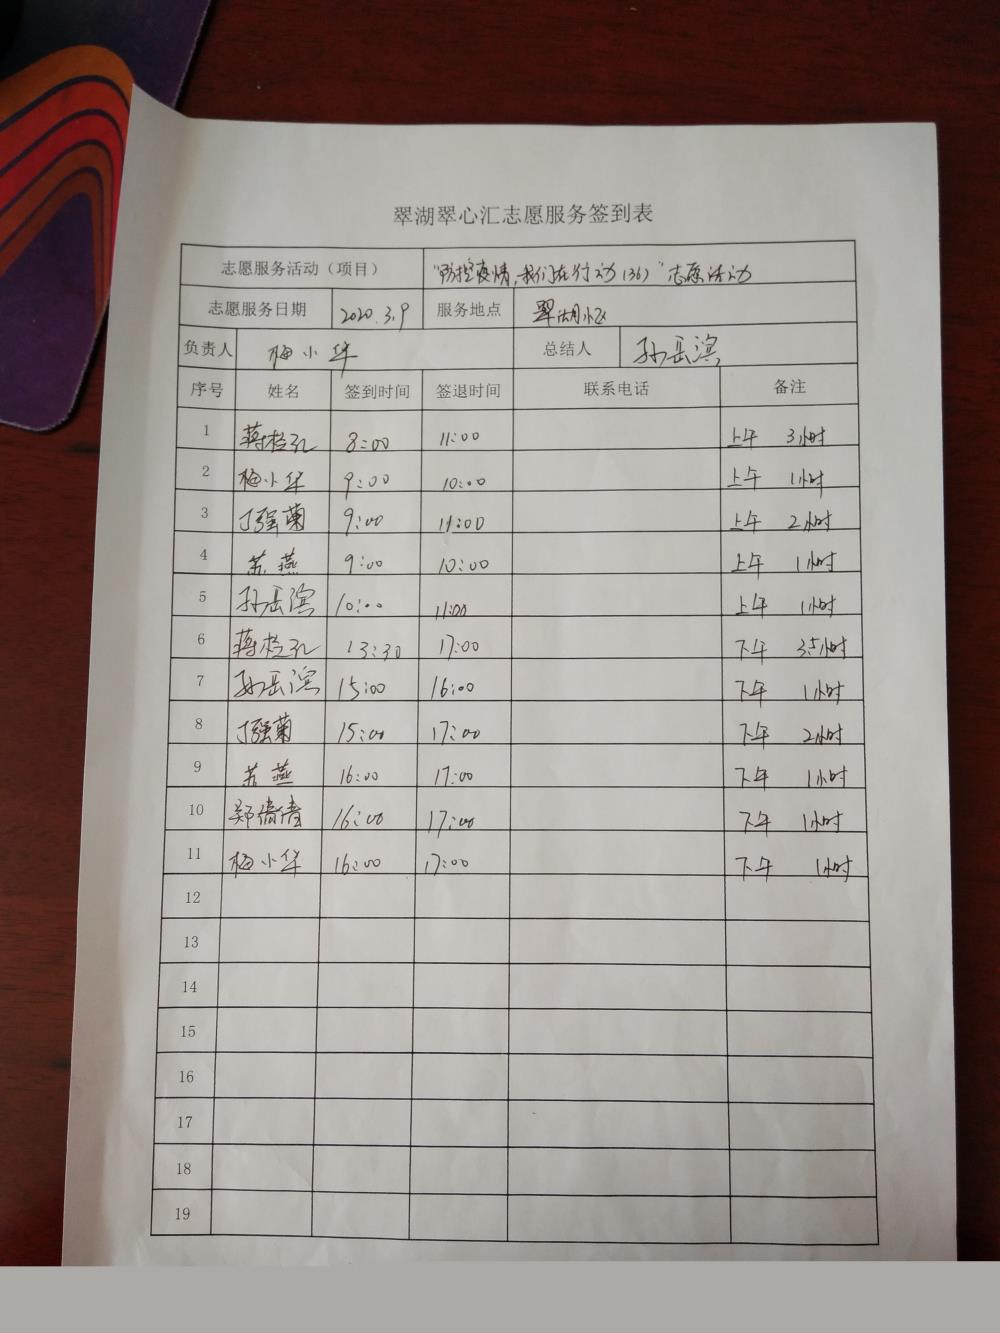 翠湖翠心汇志愿服务签到表
志愿服务活动（项目） “防控疫情，我们在行动（36）”志愿活动
志愿服务日期 2020.3.9 服务地点 翠湖小区
负责人 梅小华 总结人 孙岳滨
序号 姓名 签到时间 签退时间 联系电话 备注
1 蒋栓孔 8:00 11:00 上午 3小时
2 梅小华 9:00 10:00 上午 1小时
3 丁强菊 9:00 11:00 上午 2小时
4 苏燕 9:00 10:00 上午 1小时
5 孙岳滨 10:00 11:00 上午 1小时
6 蒋栓孔 13:30 17:00 下午 3.5小时
7 孙岳滨 15:00 16:00 下午 1小时
8 丁强菊 15:00 17:00 下午 2小时
9 苏燕 16:00 17:00 下午 1小时
10 郑倩倩 16:00 17:00 下午 1小时
11 梅小华 16:00 17:00 下午 1小时
12
13
14
15
16
17
18
19